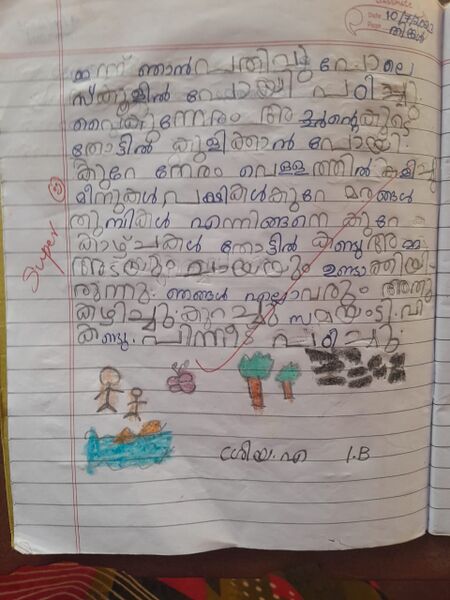 Date 10/7/2023
തിങ്കൾ
ഇന്ന് ഞാൻ പതിവു പോലെ
സ്കൂളിൽ പോയി പഠിച്ചു.
വൈകുന്നേരം അച്ഛൻ്റെകൂടെ
തോട്ടിൽ കുളിത്താൻ പോയി.
കുറേ നേരം വെള്ളത്തിൽ കളിച്ചു
മീനുകൾ പക്ഷികൾ കുറേ മരങ്ങൾ
തുമ്പികൾ എന്നിങ്ങനെ കുറേ
കാഴ്ചകൾ തോട്ടിൽ കണ്ടു അമ്മ
അടയും ചായയും ഉണ്ടാത്തിയി
രുന്നു. ഞങ്ങൾ എല്ലാവരും അതു
കഴിച്ചു. കുറച്ചു സമയം ടി.വി
കണ്ടു. പിന്നീട് പഠിച്ചു.
Super
ശ്രിയ.എ 1.B